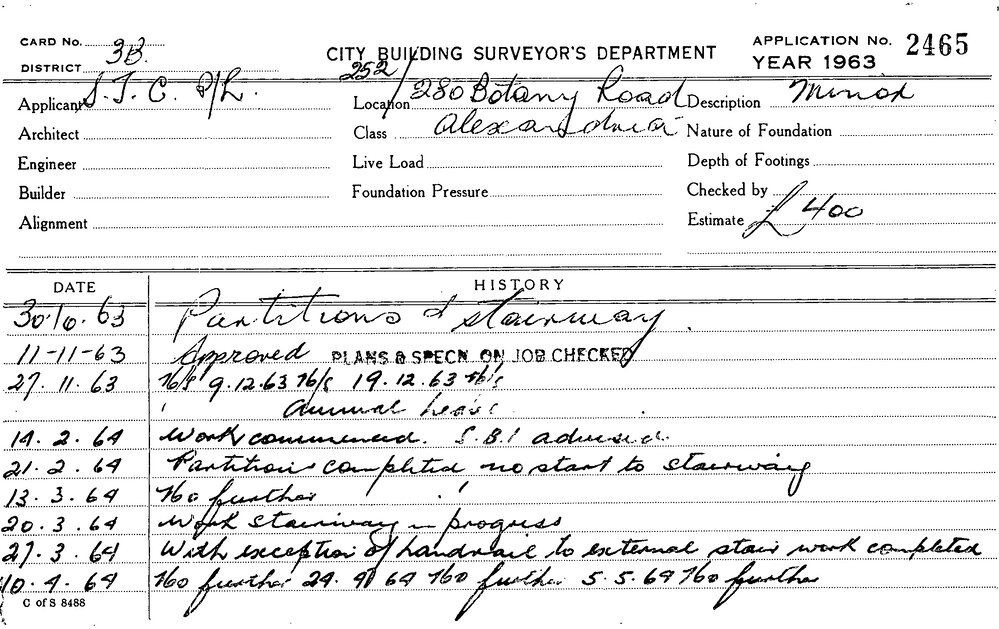 CARD No. 3B.
DISTRICT
CITY BUILDING SURVEYOR'S DEPARTMENT
APPLICATION No. 2465
YEAR 1963
Applicant S.T.C. P/L.
Location 252/280 Botany Road
Description Minor
Architect
Class Alexandria
Nature of Foundation
Engineer
Live Load
Depth of Footings
Builder
Foundation Pressure
Checked by
Alignment
Estimate £400
DATE HISTORY
30.10.63 Partitions & stairway.
11-11-63 Approved PLANS & SPECN. ON JOB CHECKED
27.11.63 N/S 9.12.63 N/S 19.12.63 N/S
Annual leave
14.2.64 Work commenced. S.B.I advised.
21.2.64 Partition completed no start to stairway
13.3.64 No further
20.3.64 Work stairway in progress
27.3.64 With exception of handrail to external stair work completed
10.4.64 No further 24.4.64 No further 5.5.64 No further
C of S 8488